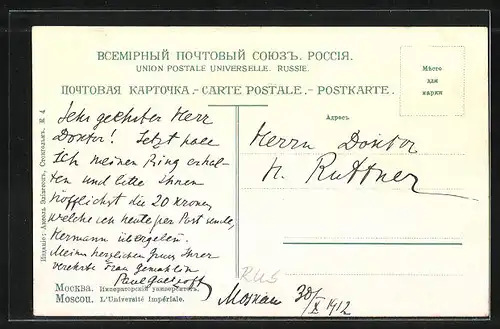 ВСЕМІРНЫЙ ПОЧТОВЫЙ СОЮЗЪ. РОССІЯ.
UNION POSTALE UNIVERSELLE. RUSSIE.
ПОЧТОВАЯ КАРТОЧКА.-CARTE POSTALE.-POSTKARTE.
Мѣсто
для
марки
Адресъ
Sehr geehrter Herr
Doktor! Jetzt habe
ich meinen Ring erhal-
ten und bitte Ihnen
höfflichst die 20 Kronen
welche ich heute per Post sende,
Hermann übergeben.
Meine herzlichen Gruss Ihrer
verehrte Frau gemahlin
Paul
Herrn Doktor
Ruttner
Москва. Императорскій университетъ.
Moscou. L'Université Impériale.
RUS
Moskau 30/X 1912
Стокгольмъ. № 4